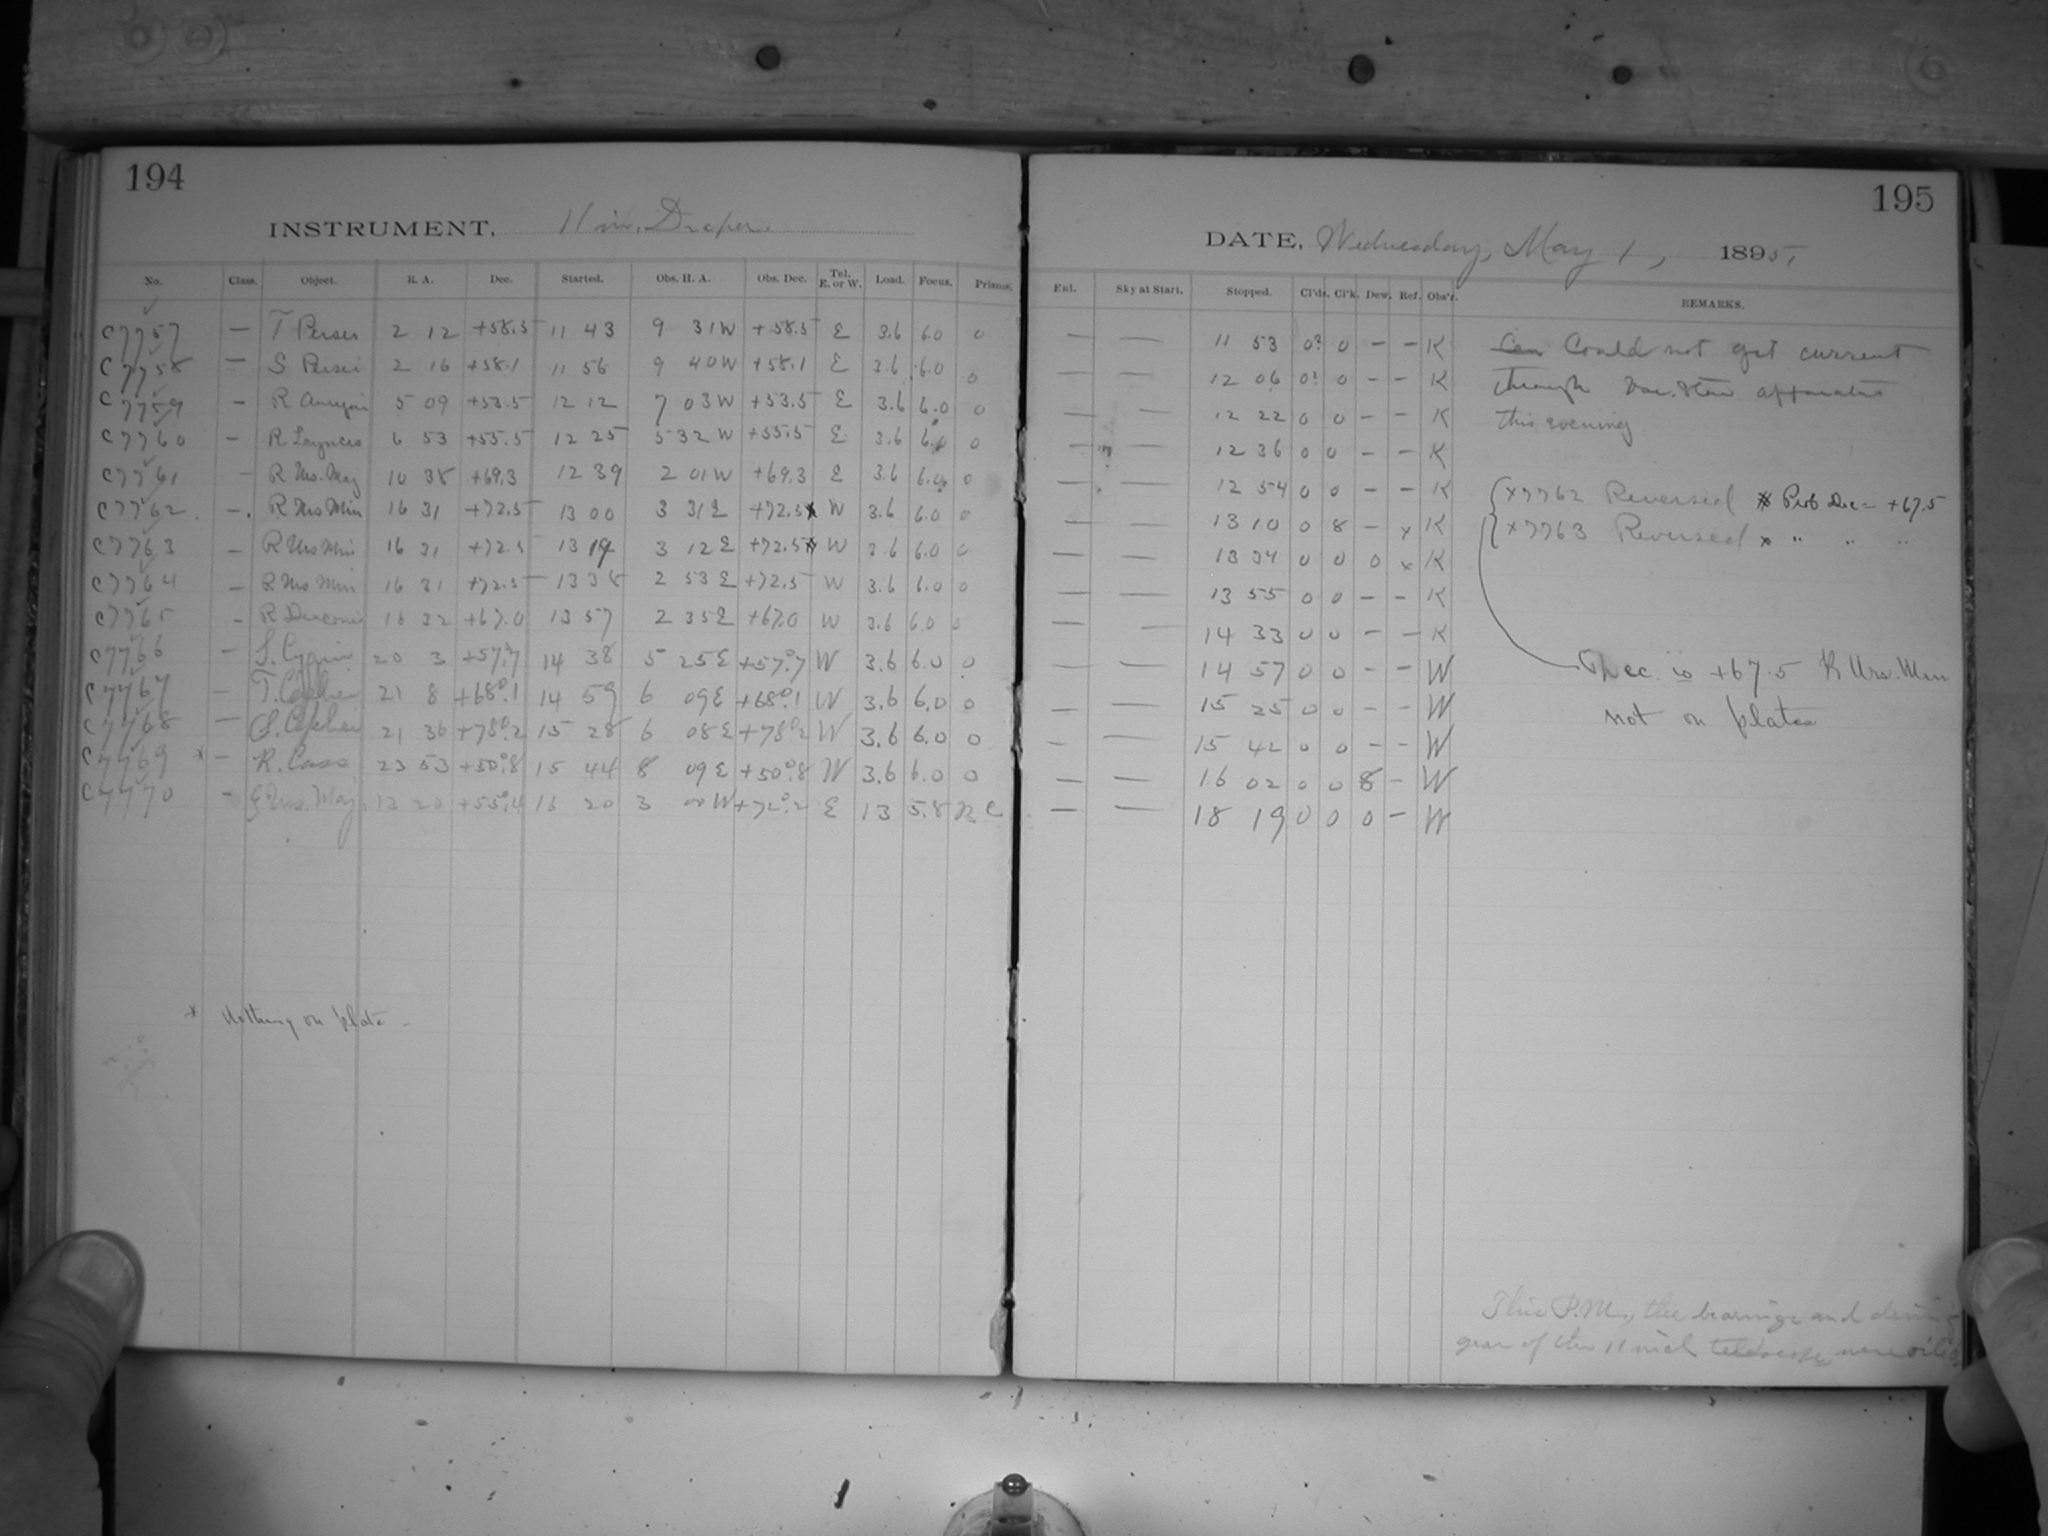 194
INSTRUMENT, 11 in. Draper.
No. Class. Object. R. A. Dec. Started. Obs. H. A. Obs. Dec. Tel. E. or W. Load. Focus. Prisms.
C7757 — T Persei 2 12 +58.5 11 43 9 31W +58.5 E 3.6 6.0 0
C7758 — S Persei 2 16 +58.1 11 56 9 40W +58.1 E 3.6 6.0 0
C7759 — R Aurigae 5 09 +53.5 12 12 7 03W +53.5 E 3.6 6.0 0
C7760 — R Lyncis 6 53 +55.5 12 25 5 32W +55.5 E 3.6 6.0 0
C7761 — R Urs. Maj 10 38 +69.3 12 39 2 01W +69.3 E 3.6 6.0 0
C7762 — R Urs Min 16 31 +72.5 13 00 3 31E +72.5x W 3.6 6.0 0
C7763 — R Urs Min 16 31 +72.5 13 19 3 12E +72.5x W 3.6 6.0 0
C7764 — R Urs Min 16 31 +72.5 13 38 2 53E +72.5 W 3.6 6.0 0
C7765 — R Draconis 16 32 +67.0 13 57 2 35E +67.0 W 3.6 6.0 0
C7766 — S. Cygni 20 3 +57°.7 14 38 5 25E +57°.7 W 3.6 6.0 0
C7767 — T. Cephei 21 8 +68°.1 14 59 6 09E +68°.1 W 3.6 6.0 0
C7768 — S. Cephei 21 36 +78°.2 15 28 6 08E +78°.2 W 3.6 6.0 0
C7769 * — R. Cass 23 53 +50°.8 15 44 8 09E +50°.8 W 3.6 6.0 0
C7770 — ζ Urs. Maj. 13 20 +55°.4 16 20 3 00W +72°.2 E 13 5.8 B C
* Nothing on plate —
195
DATE, Wednesday, May 1, 1895,
Enl. Sky at Start. Stopped. Cl'ds. Cl'k. Dew. Ref. Obs'r. REMARKS.
— — 11 53 0? 0 — — K Could not get current
— — 12 06 0! 0 — — K through apparatus
— — 12 22 0 0 — — K this evening
— — 12 36 0 0 — — K
— — 12 54 0 0 — — K x7762 Reversed x Prob Dec = +67.5
— — 13 10 0 8 — x K x7763 Reversed x " " "
— — 13 34 0 0 0 x K
— — 13 55 0 0 — — K
— — 14 33 0 0 — — K
— — 14 57 0 0 — — W Dec. is +67.5 R Urs. Min
— — 15 25 0 0 — — W not on plates
— — 15 42 0 0 — — W
— — 16 02 0 0 8 — W
— — 18 19 0 0 0 — W
This P.M., the bearings and driving
gear of the 11 inch telescope were oiled.